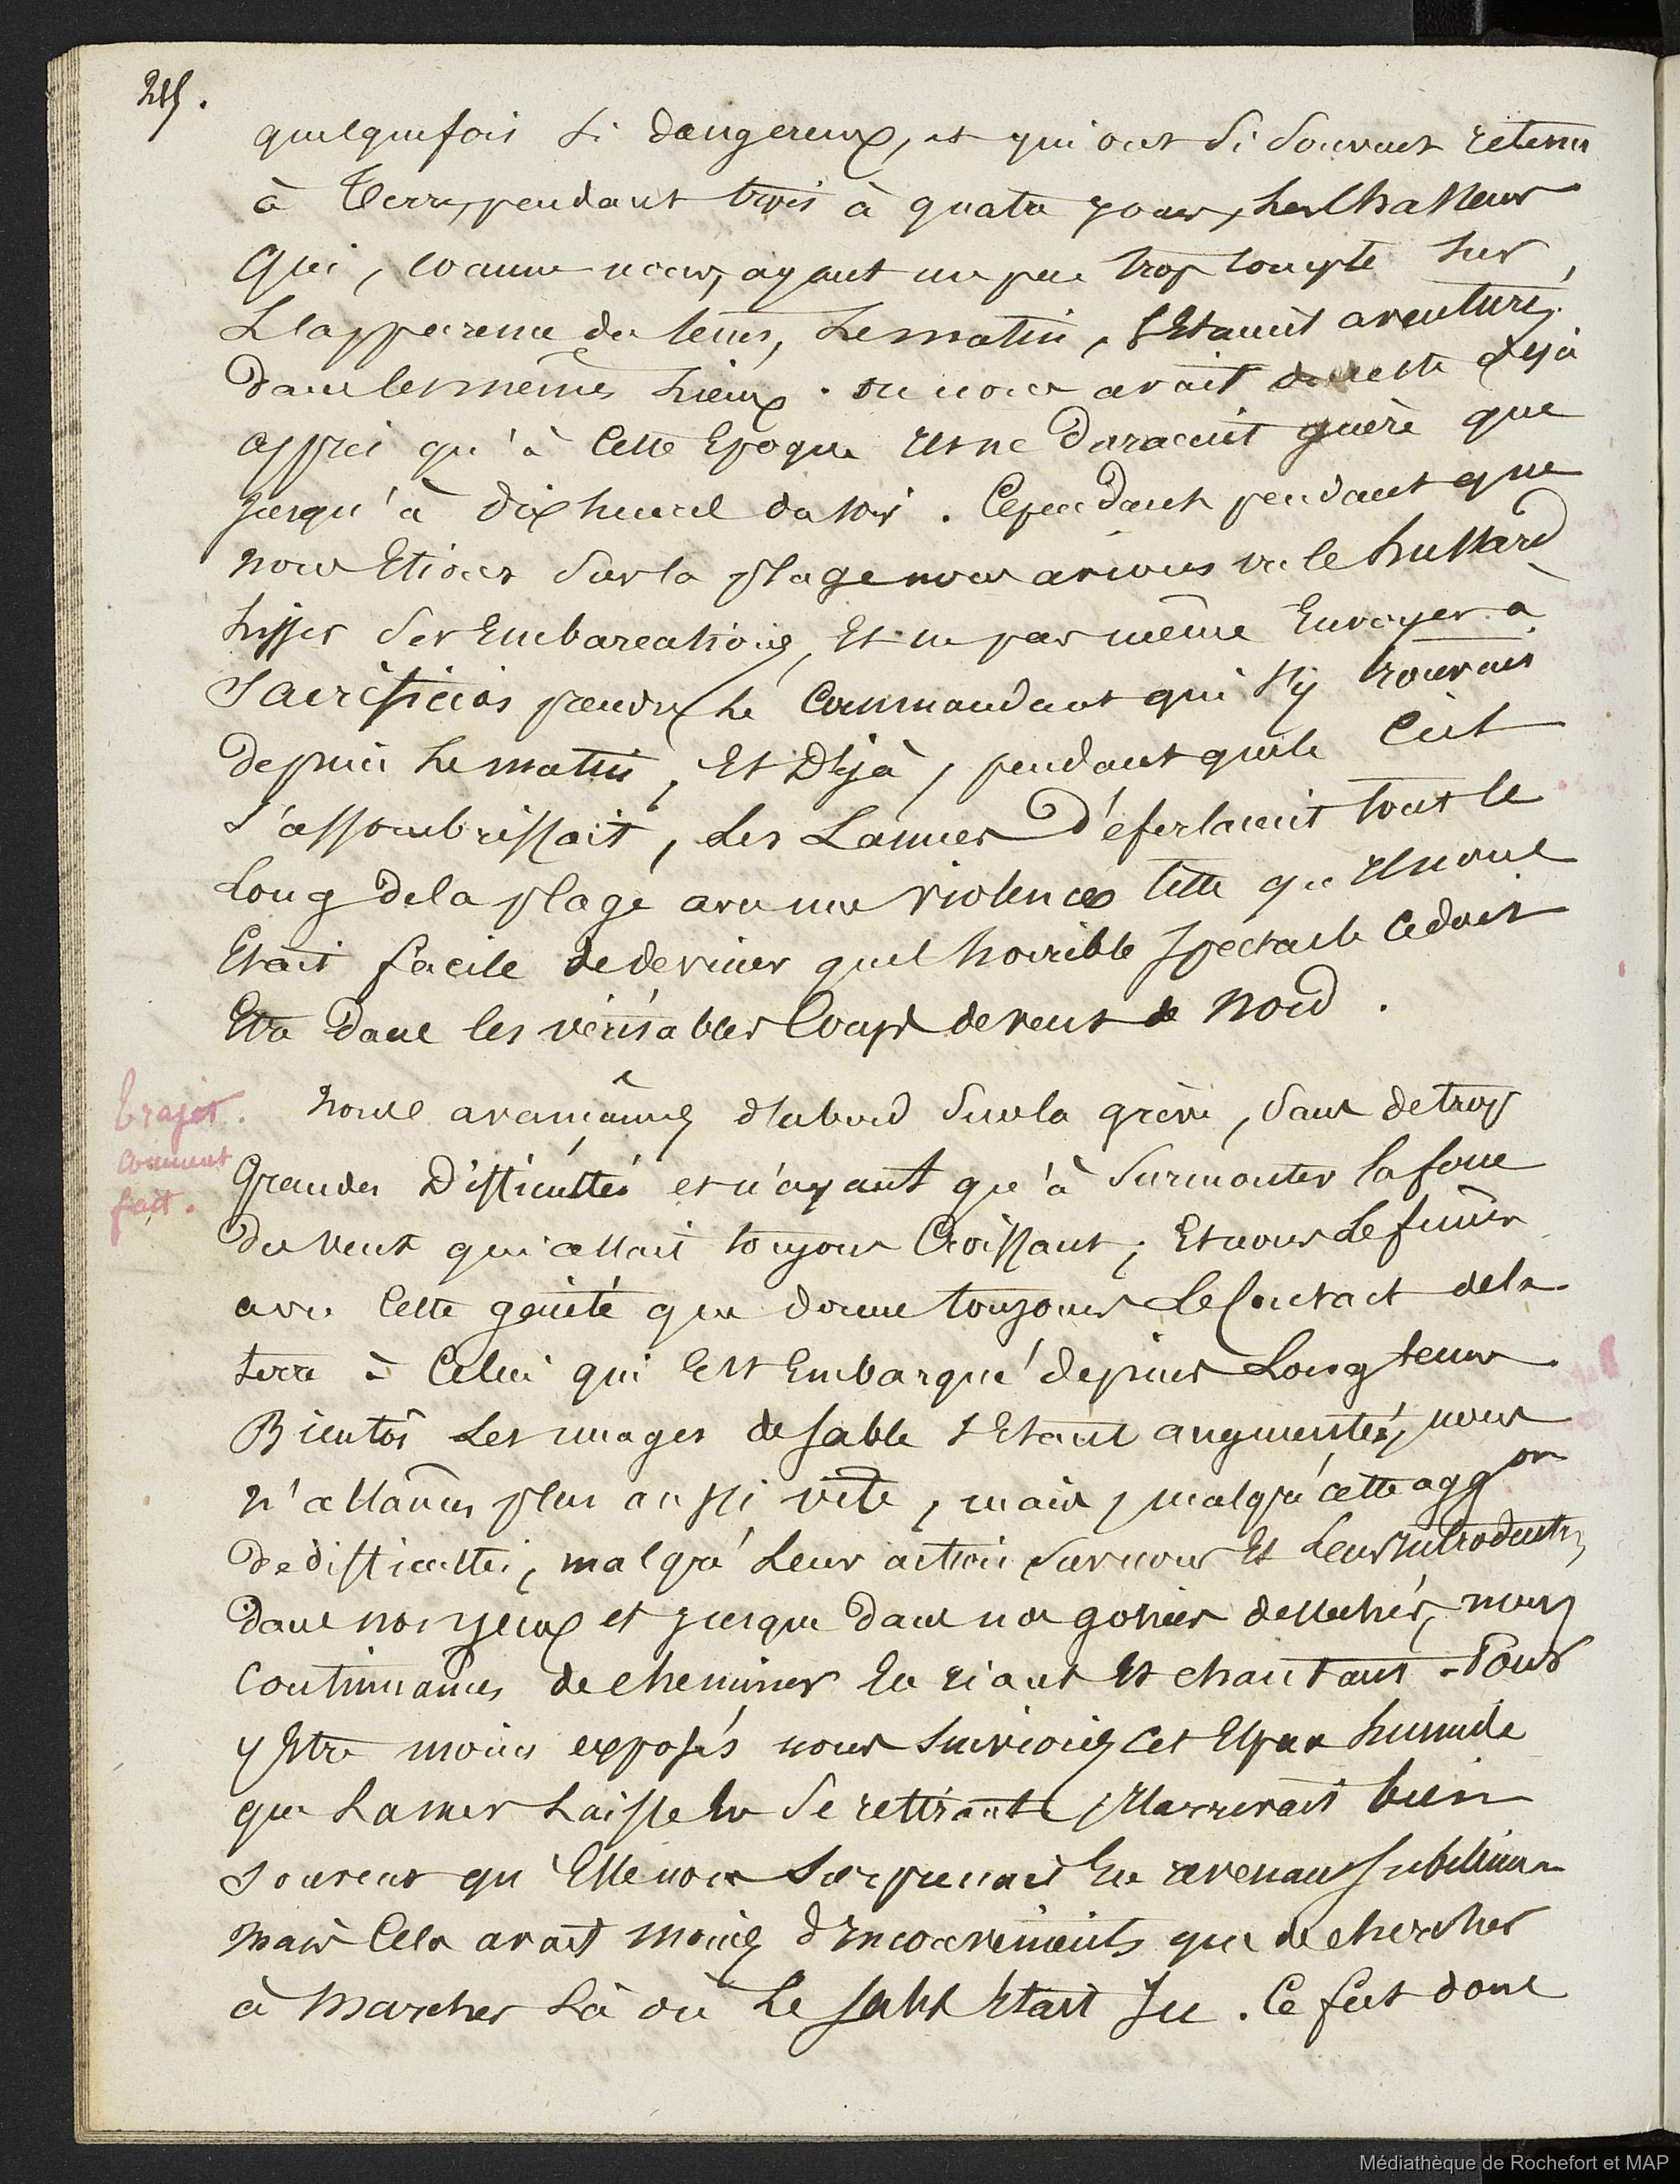 215.
quelquefois si dangereux, et qui ont si souvent retenu
à terre, pendant trois à quatre jours, les chasseurs
qui, comme nous, ayant un peu trop compté sur
L'apparence du tems, le matin, s'Etaient aventurés
dans les mêmes lieux. on nous avait du reste déjà
appris qu'à cette Epoque ils ne duraient guère que
jusqu'à dix heures du soir. Cependant pendant que
nous Etions sur la plage nous avions vu le hussard
hisser ses Embarcations, Et ne pas même Envoyer à
Sacrificios prendre le Commandant qui s'y trouvait
depuis le matin, Et Déjà, pendant que le Ciel
s'assombrissait, les Lames Déferlaient tout le
long de la plage avec une violence telle qu'il nous
Etait facile de deviner quel horrible spectacle ce doit
Etre dans les véritables Coups de vent de Nord.
trajet.
comment
fait.
Nous avançâmes d'abord sur la grève, sans de trop
Grandes Difficultés et n'ayant qu'à surmonter la force
du vent qui allait toujours Croissant; Et nous le fimes
avec cette gaieté que donne toujours le Contact de la
terre à Celui qui Est Embarqué depuis Longtems.
Bientôt les nuages de sable s'Etant augmentés, nous
n'allâmes plus aussi vite, mais, malgré cette aggon
de difficultés, malgré leur action sur nous Et leur introduction
dans nos yeux et jusque dans nos gosiers desséchés, nous
continuâmes de cheminer En riant Et chantant - Pour
y Etre moins exposés nous suivions cet Espace humide
que la mer laisse En se retirant; Il arrivait bien
souvent qu'Elle nous surprenait En revenant subitement
mais Cela avait moins d'Inconvénients que de chercher
à marcher là où le sable Etait sec. Ce fut donc
Médiathèque de Rochefort et MAP